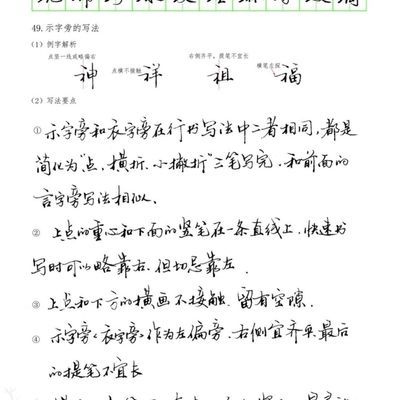 49.示字旁的写法
(1) 例字解析
点竖一线或略偏右
右侧齐平,提笔不宜长
神 点横不接触 祥 祖 横笔左探 福
(2) 写法要点
① 示字旁和衣字旁在行书写法中二者相同,都是
简化为"点、横折、小撇折"三笔写完,和前面的
言字旁写法相似。
② 上点的重心和下面的竖笔在一条直线上,快速书
写时可以略靠右,但切忌靠左。
③ 上点和下方的横画不接触,留有空隙。
④ 示字旁(衣字旁)作为左偏旁,右侧宜齐平,最后
的提笔不宜长